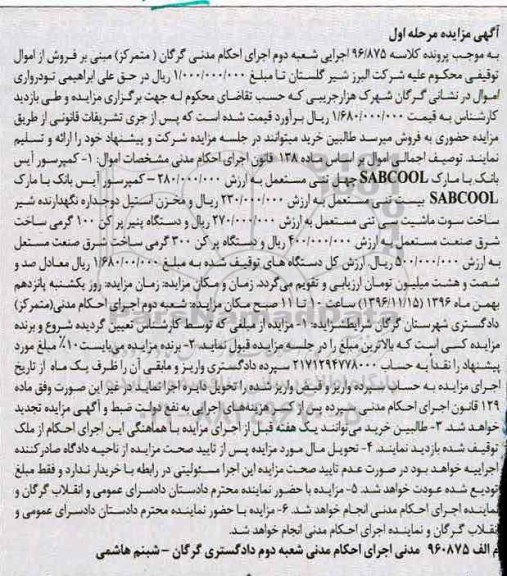 آگهی مزایده مرحله اول
به موجب پرونده کلاسه ۹۶/۸۷۵ اجرایی شعبه دوم اجرای احکام مدنی گرگان ( متمرکز) مبنی بر فروش از اموال
توقیفی محکوم علیه شرکت البرز شیر گلستان تا مبلغ ۱/۰۰۰/۰۰۰/۰۰۰ ریال در حق علی ابراهیمی نودرواری
اموال در نشانی گرگان شهرک هزارجریبی که حسب تقاضای محکوم له جهت برگزاری مزایده و طی بازدید
کارشناس به قیمت ۱/۶۸۰/۰۰۰/۰۰۰ ریال برآورد قیمت شده است که پس از جری تشریفات قانونی از طریق
مزایده حضوری به فروش میرسد طالبین خرید میتوانند در جلسه مزایده شرکت و پیشنهاد خود را ارائه و تسلیم
نمایند. توصیف اجمالی اموال بر اساس ماده ۱۳۸ قانون اجرای احکام مدنی مشخصات اموال: ۱- کمپرسور آیس
بانک با مارک SABCOOL چهار تنی مستعمل به ارزش ۲۸۰/۰۰۰/۰۰۰ – کمپرسور آیس بانک با مارک
SABCOOL بیست تنی مستعمل به ارزش ۲۳۰/۰۰۰/۰۰۰ ریال و مخزن استیل دوجداره نگهدارنده شیر
ساخت سوت ماشیت سی تنی مستعمل به ارزش ۲۷۰/۰۰۰/۰۰۰ ریال و دستگاه پنیر پر کن ۱۰۰ گرمی ساخت
شرق صنعت مستعمل به ارزش ۴۰۰/۰۰۰/۰۰۰ ریال و دستگاه پر کن ۳۰۰ گرمی ساخت شرق صنعت مستعل
به ارزش ۵۰۰/۰۰۰/۰۰۰ ریال. ارزش کل دستگاه های توقیف شده به مبلغ ۱/۶۸۰/۰۰/۰۰۰ ریال معادل صد و
شصت و هشت میلیون تومان ارزیابی و تقویم می‌گردد. زمان و مکان مزایده: زمان مزایده: روز یکشنبه پانزدهم
بهمن ماه ۱۳۹۶ (۱۳۹۶/۱۱/۱۵) ساعت ۱۰ تا ۱۱ صبح مکان مزایده: شعبه دوم اجرای احکام مدنی(متمرکز)
دادگستری شهرستان گرگان شرایط‌مزایده: ۱- مزایده از مبلغی که توسط کارشناس تعیین گردیده شروع و برنده
مزایده کسی است که بالاترین مبلغ را در جلسه مزایده قبول نماید. ۲- برنده مزایده می‌بایست ۱۰٪ مبلغ مورد
پیشنهاد را نقداً به حساب ۲۱۷۱۲۹۴۷۷۸۰۰۰ سپرده دادگستری واریز و مابقی آن را ظرف یک ماه از تاریخ
اجرای مزایده به حساب سپرده واریز و قبض واریز شده را تحویل دایره اجرا نماید در غیر این صورت وفق ماده
۱۲۹ قانون اجرای احکام مدنی سپرده پس از کسر هزینه‌های اجرایی به نفع دولت ضبط و آگهی مزایده تجدید
خواهد شد. ۳- طالبین خرید می‌توانند یک هفته قبل از اجرای مزایده با هماهنگی این اجرای احکام از ملک
توقیف شده بازدید نمایند. ۴- تحویل مال مورد مزایده پس از تایید صحت مزایده از ناحیه دادگاه صادرکننده
اجراییه خواهد بود در صورت عدم تایید صحت مزایده این اجرا مسئولیتی در رابطه با خریدار ندارد و فقط مبلغ
تودیع شده عودت خواهد شد. ۵- مزایده با حضور نماینده محترم دادستان دادسرای عمومی و انقلاب گرگان و
نماینده اجرای احکام مدنی انجام خواهد شد. ۶- مزایده با حضور نماینده محترم دادستان دادسرای عمومی و
انقلاب گرگان و نماینده اجرای احکام مدنی انجام خواهد شد.
م الف ۹۶۰۸۷۵ مدنی اجرای احکام مدنی شعبه دوم دادگستری گرگان – شبنم هاشمی
ParsNamadData